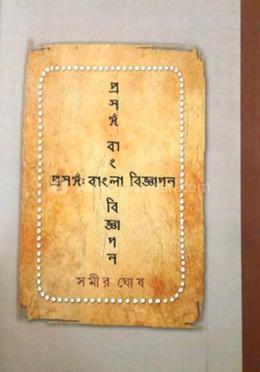 প্রসঙ্গ বাংলা বিজ্ঞাপন
প্রসঙ্গ: বাংলা বিজ্ঞাপন
সমীর ঘোষ